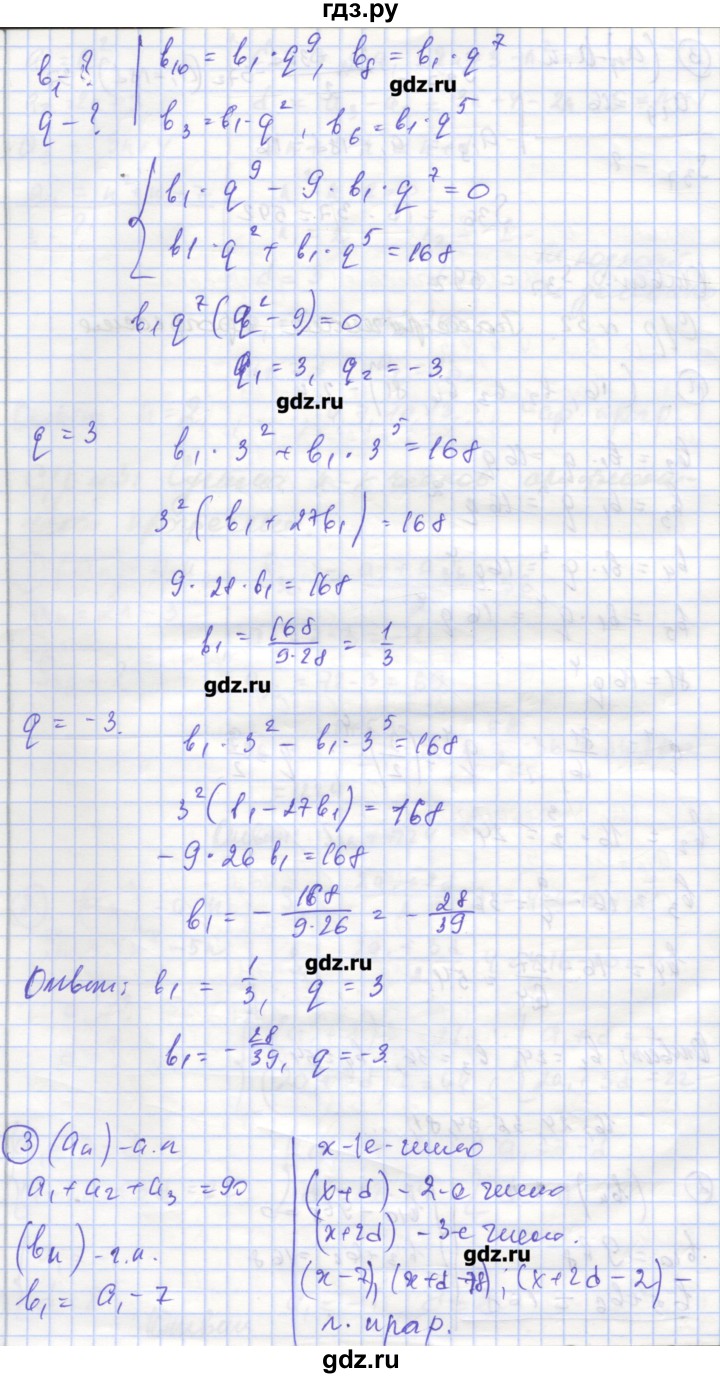 гдз.ру
b₁ - ? | b₁₀ = b₁ · q⁹, b₈ = b₁ · q⁷
gdz.ru
q - ? b₃ = b₁ · q², b₆ = b₁ · q⁵
{ b₁ · q⁹ - 9 · b₁ · q⁷ = 0
b1 · q² + b₁ · q⁵ = 168
b₁ q⁷ (q² - 9) = 0
q₁ = 3, q₂ = -3.
gdz.ru
q = 3 b₁ · 3² + b₁ · 3⁵ = 168
3² ( b₁ + 27b₁) = 168
9 · 28 · b₁ = 168
b₁ = 168/9·28 = 1/3
gdz.ru
q = -3. b₁ · 3² - b₁ · 3⁵ = 168
3² (b₁ - 27b₁) = 168
- 9 · 26 b₁ = 168
b₁ = - 168/9·26 = - 28/39
gdz.ru
Ответ: b₁ = 1/3, q = 3
b₁ = - 28/39, q = -3.
③ (aₙ) - а.п
a₁ + a₂ + a₃ = 90
(bₙ) - г.п.
b₁ = a₁ - 7
x - 1е - число
(x+d) - 2-е число
(x+2d) - 3-е число.
gdz.ru
(x-7), (x+d-8); (x+2d-2) -
г. прогр.
gdz.ru